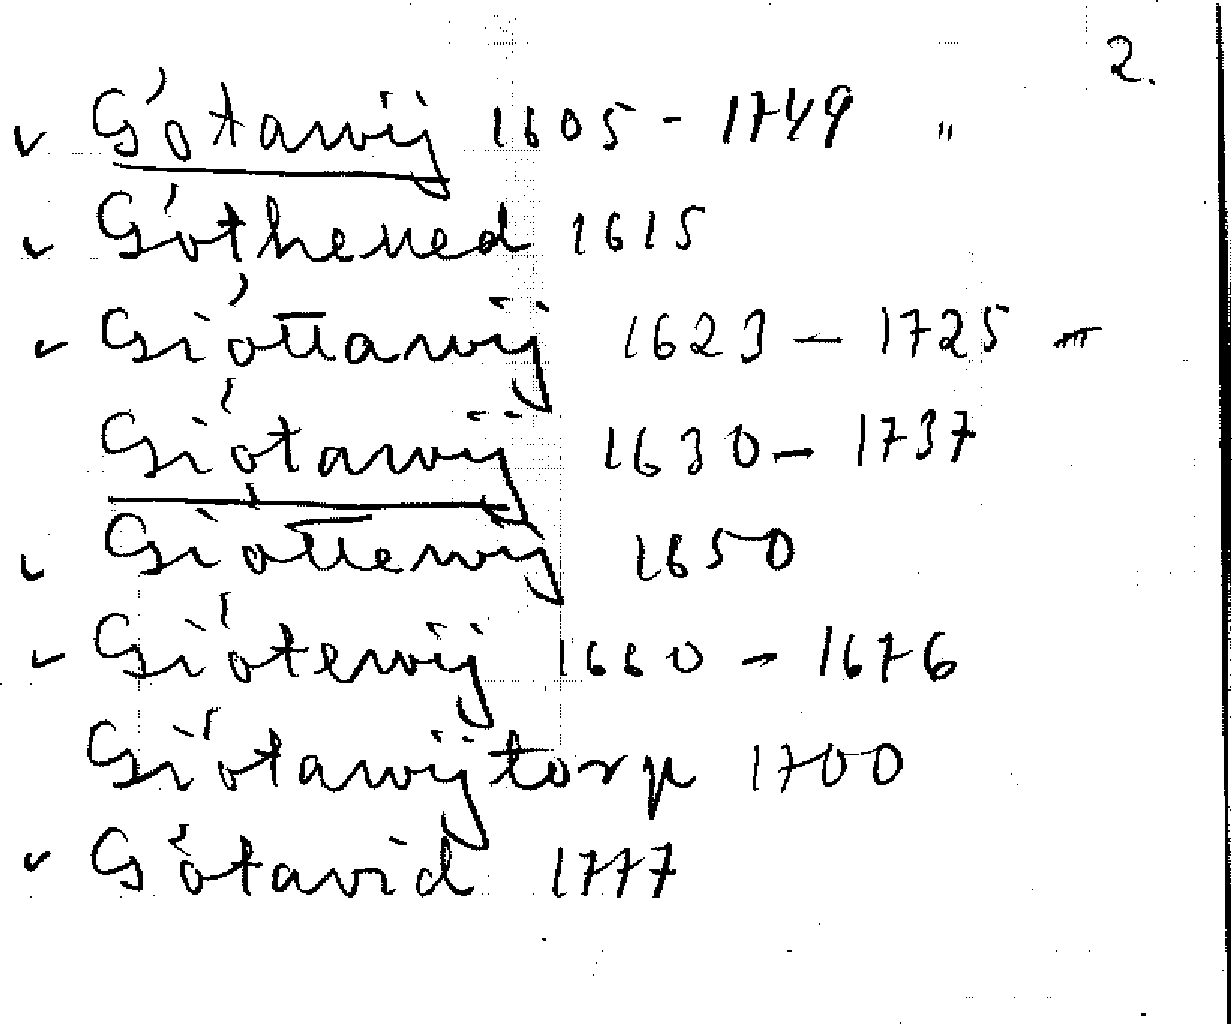 2.
v Gótawij 1605 - 1749 "
v Góthened 1615
v Gióttawij 1623 - 1725 - "
Giótawij 1630 - 1737
v Gióttewij 1650
v Giótewij 1660 - 1676
Giótawijtorp 1700
v Gótavid 1777